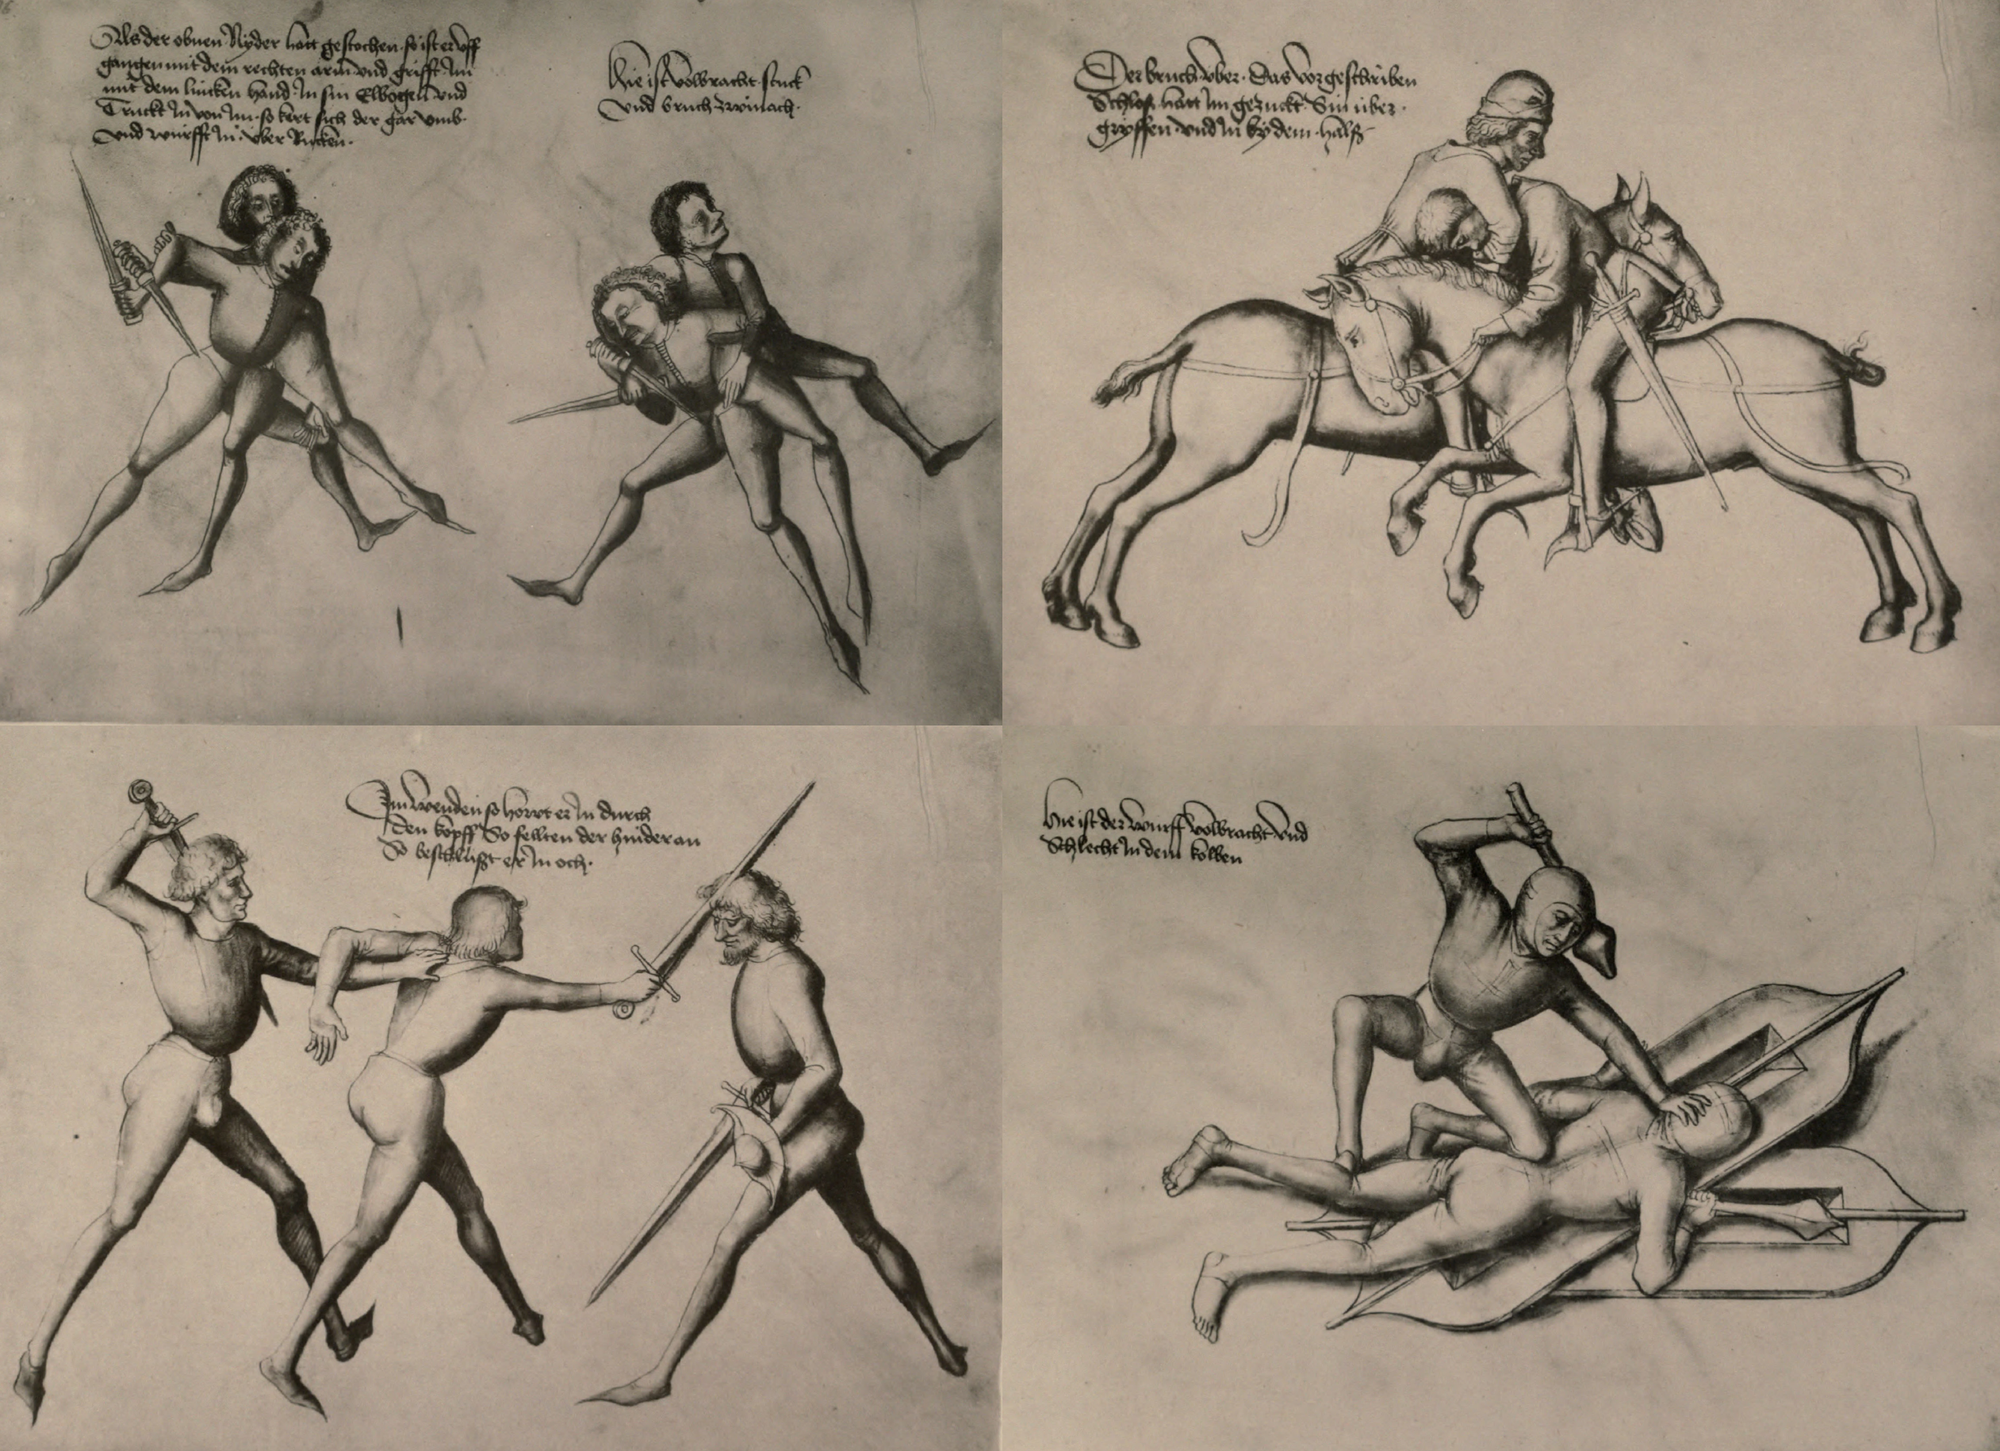 Als der obnen Nyder hatt gestochen · so ist er vff
gangen mit dem rechten arm vnd grifft Im
mit dem lincken hand · In sin Elbogen vnd
Truckt In von Im · so kert sich der gar vmb ·
vnd würfft In · vber Rucken ·
Hie ist volbracht stuck
vnd bruch zwinach ·
Der bruch vber · Das vorgeschriben
Schlos · hatt Im gezuckt · Sin über ·
gryffen · vnd In by dem · halß
Im wenden so howt er In durch
den kopff So
So beschlüßt er In och ·
Hie ist der wurff volbracht vnd
Schlecht In dem kolben